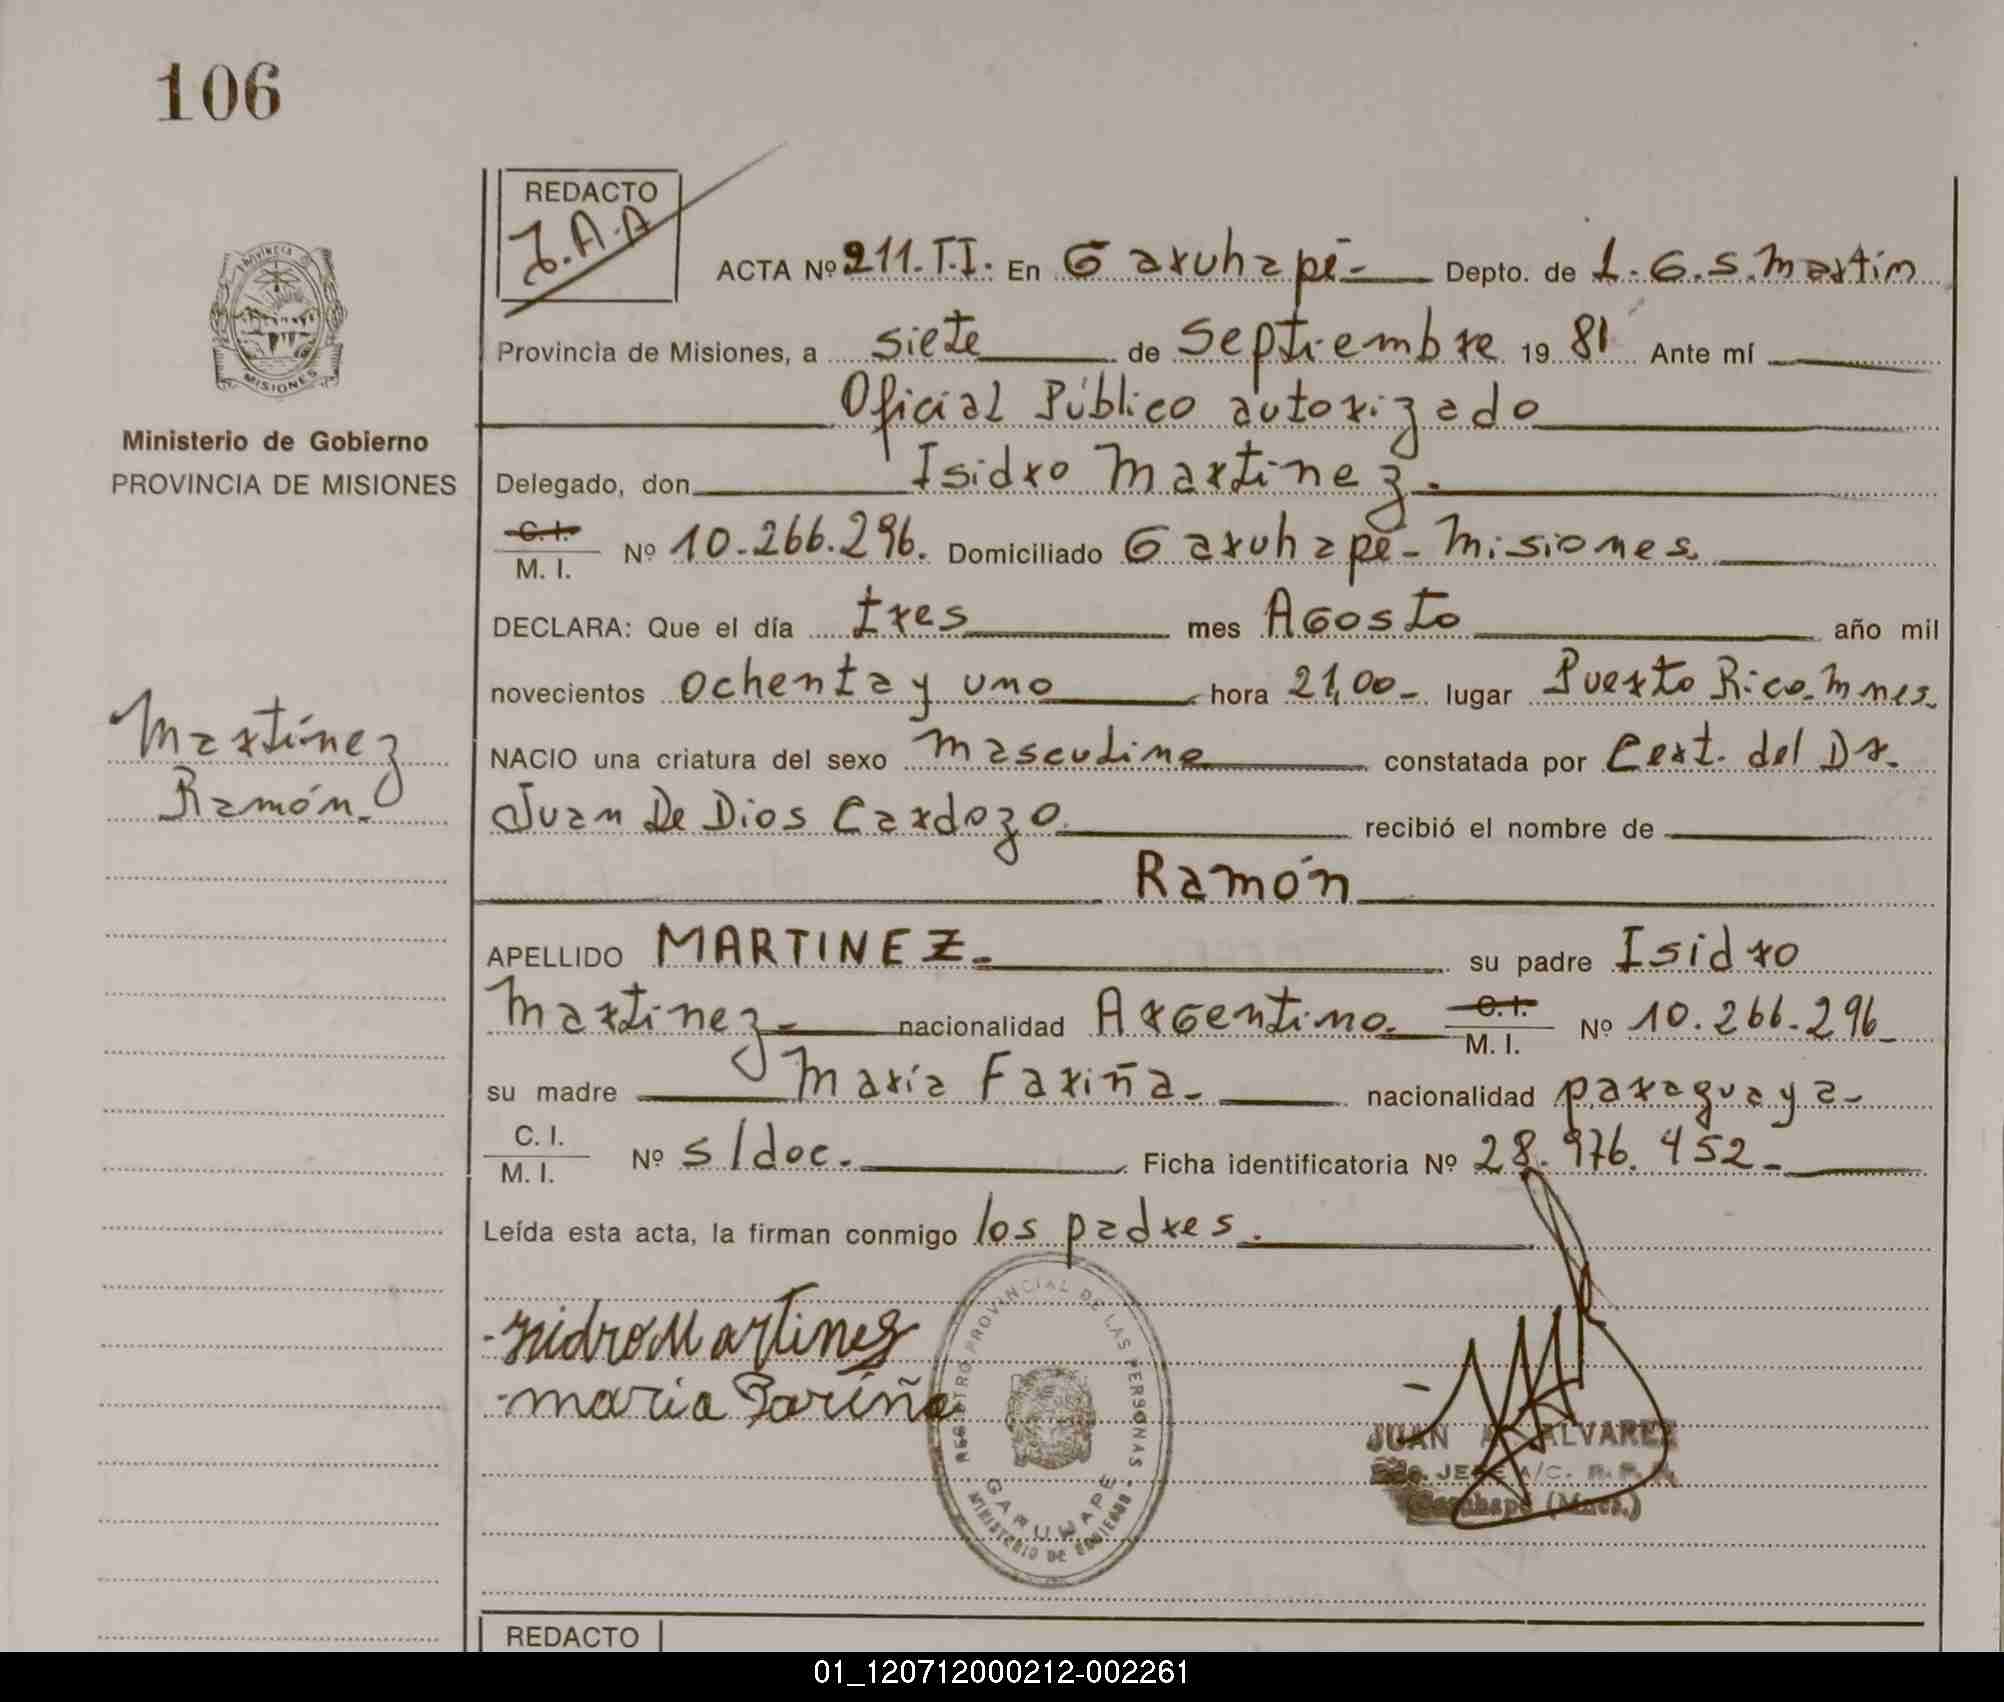 106
REDACTO
J.A.A
ACTA Nº 211.T.I. En Garuhapé- Depto. de L.G.S.Martín
Provincia de Misiones, a siete de Septiembre 19 81 Ante mí
Oficial Público autorizado
PROVINCIA
MISIONES
Ministerio de Gobierno
PROVINCIA DE MISIONES
Delegado, don Isidro Martinez.
C.I.
M. I. Nº 10.266.296. Domiciliado Garuhapé-Misiones.
DECLARA: Que el día tres mes Agosto año mil
novecientos ochenta y uno hora 21,00- lugar Puerto Rico-Mnes.
NACIO una criatura del sexo masculino constatada por Cert. del Dr.
Juan De Dios Cardozo recibió el nombre de
Ramón
Martínez
Ramón.
APELLIDO MARTINEZ- su padre Isidro
Martinez- nacionalidad Argentino. C.I.
M. I. Nº 10.266.296
su madre María Fariña- nacionalidad paraguaya-
C. I.
M. I. Nº s/doc. Ficha identificatoria Nº 28.976.452-
Leída esta acta, la firman conmigo los padres.
Isidro Martines
maria Fariña
REGISTRO PROVINCIAL DE LAS PERSONAS
GARUHAPE
MINISTERIO DE GOBIERNO
JUAN A. ALVAREZ
JEFE A/C. R. P. P.
Garuhapé (Mnes.)
REDACTO
01_120712000212-002261